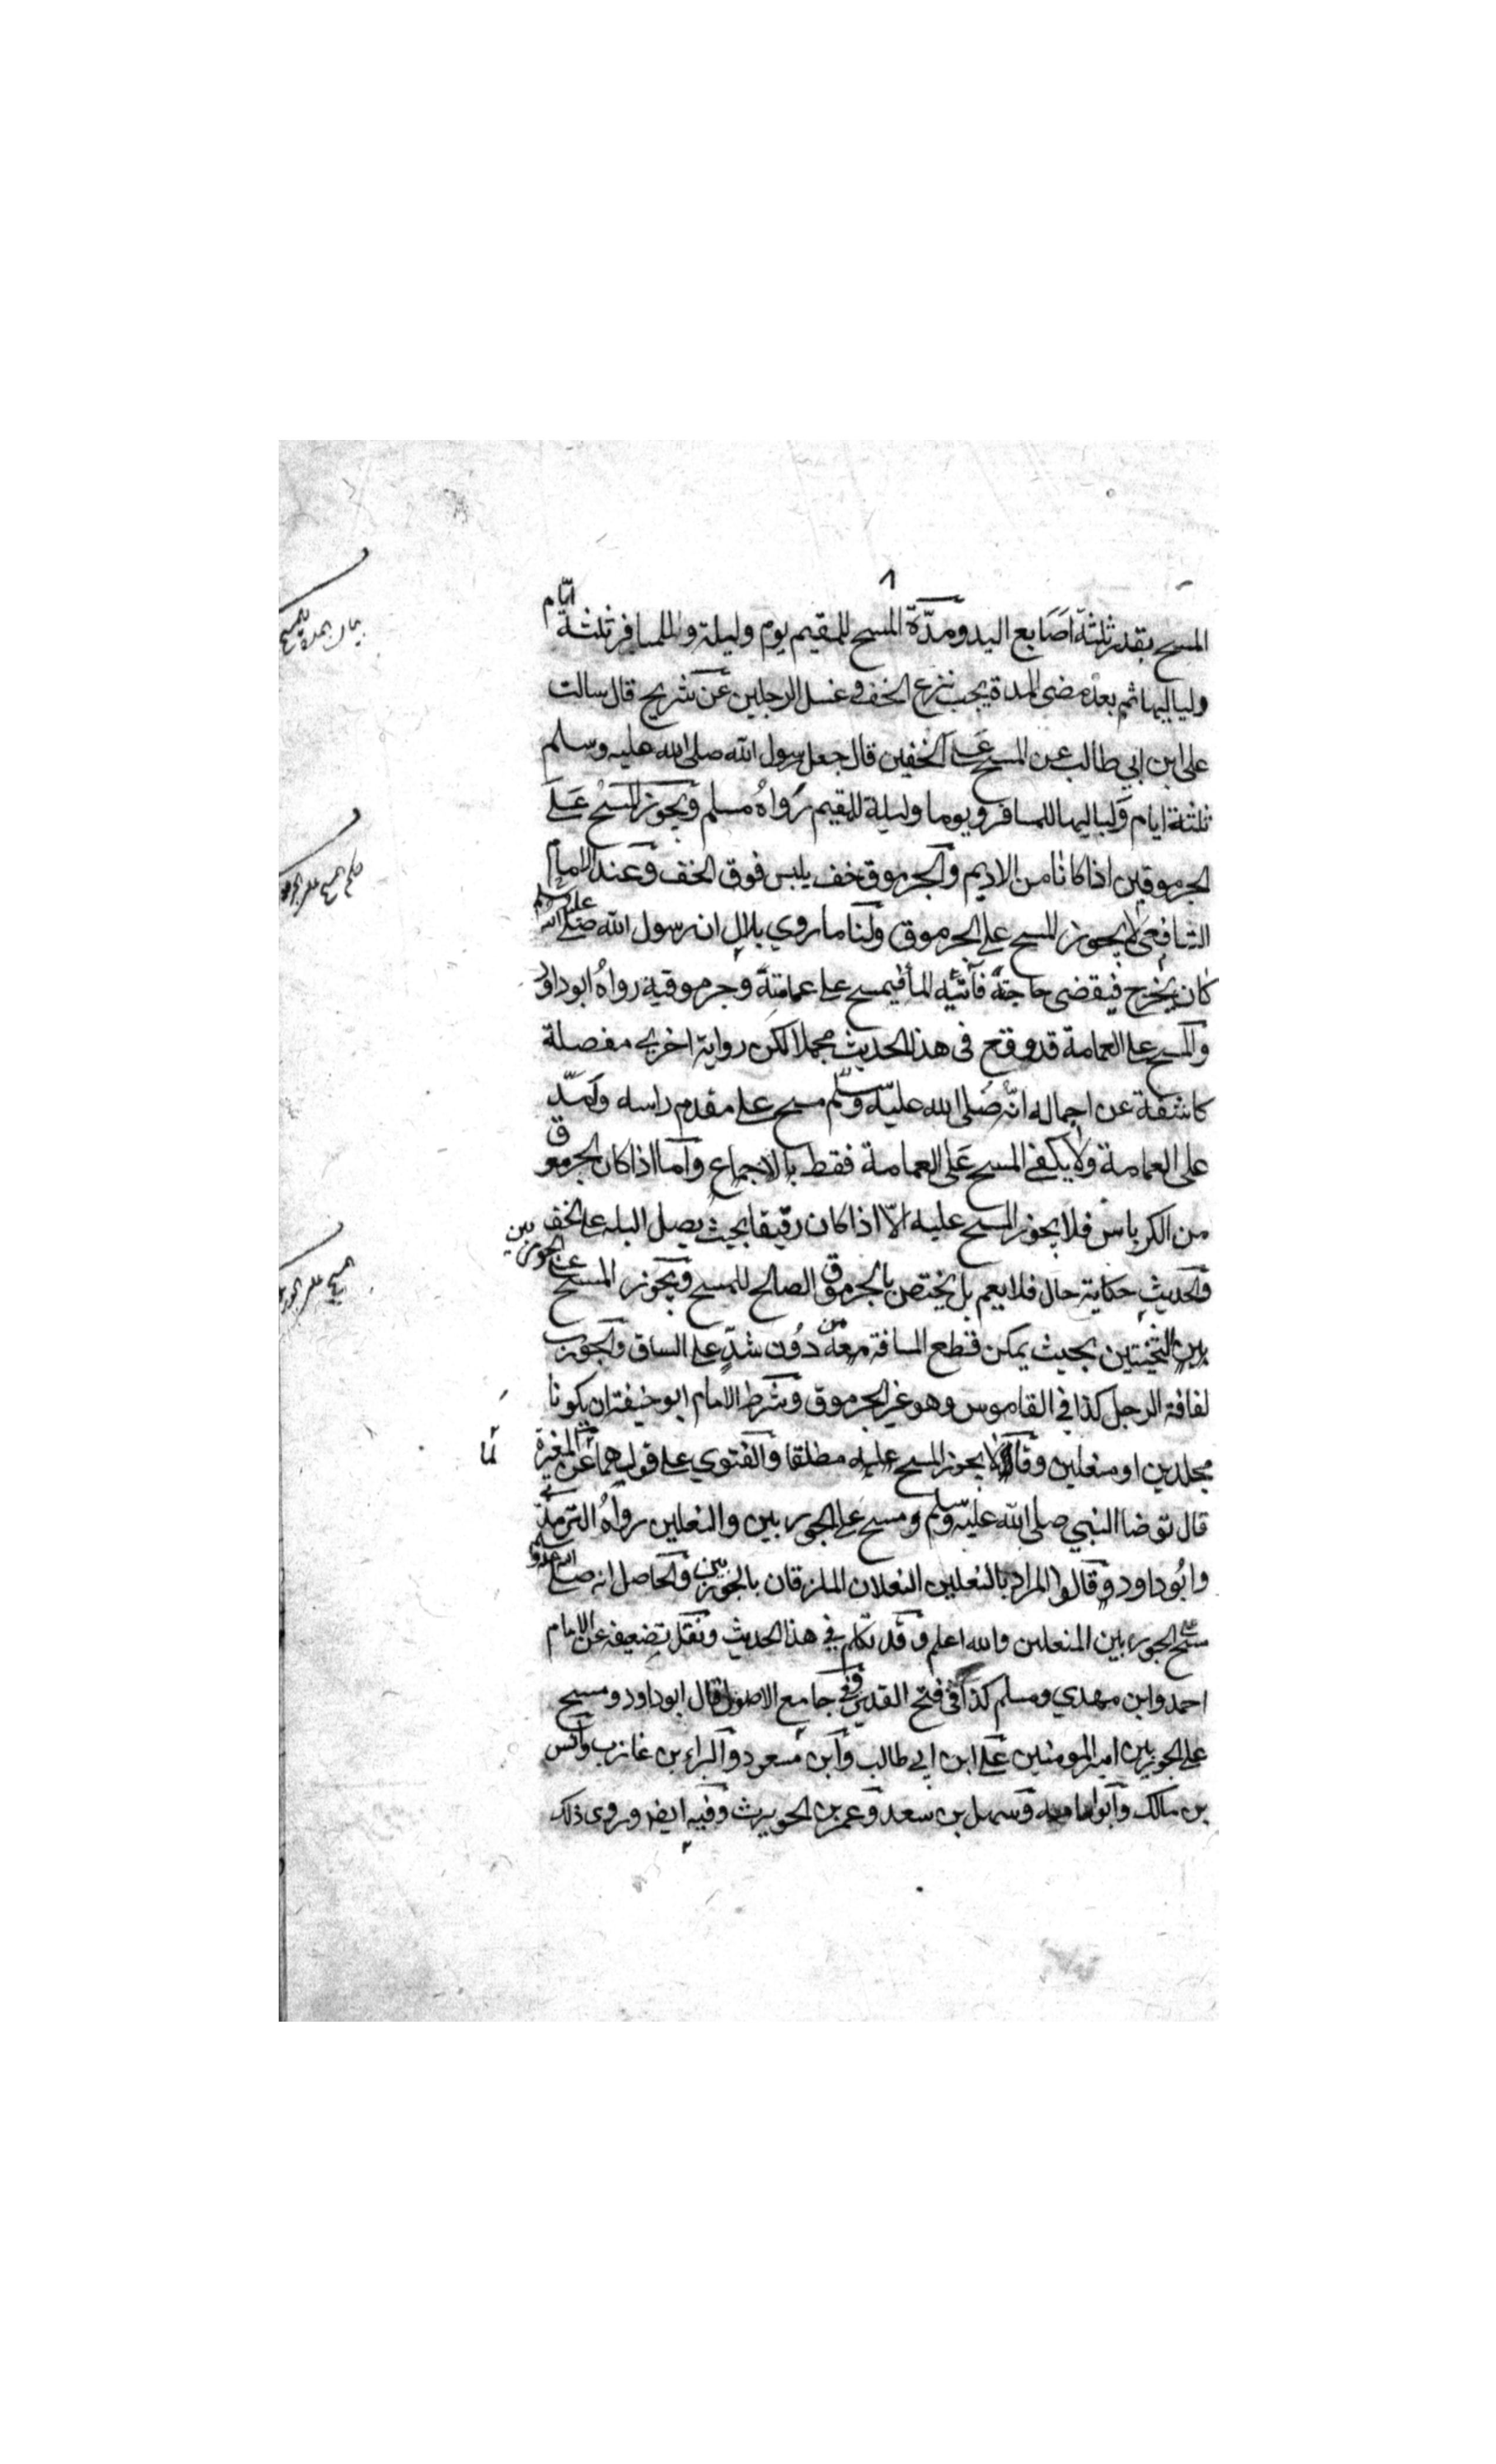 المسح بقدر ثلثة اصابع اليد ومدّة المسح للمقيم يوم وليلة وللمسافر ثلثة ايّام
ولياليها ثم بعد مضى المدة يجب نزع الخف وغسل الرجلين عن شريح قال سالت
على ابن ابي طالب عن المسح على الخفين قال جعل رسول الله صلى الله عليه وسلم
ثلثة ايام ولياليها للمسافر ويوما وليلة للمقيم رواه مسلم ويجوز المسح على
الجرموقين اذا كانا من الاديم والجرموق خف يلبس فوق الخف وعند الامام
الشافعى لا يجوز المسح على الجرموق ولنا ما روي بلال ان رسول الله صلى الله عليه وسلم
كان يخرج فيقضى حاجته فآتيه الماء فيمسح على عمامته وجرموقيه رواه ابو داود
والمسح على العمامة قد وقع فى هذا الحديث مجملا لكن رواية اخرى مفصلة
كاشفة عن اجماله انّه صلى الله عليه وسلم مسح على مقدم راسه وكمّل
على العمامة ولا يكفي المسح على العمامة فقط بالاجماع واما اذا كان الجرموق
من الكرباس فلا يجوز المسح عليه الّا اذا كان رقيقا بحيث يصل البله على الخف
والحديث حكاية حال فلا يعم بل يختص بالجرموق الصالح للمسح ويجوز المسح على الجوربين
الثخينين بحيث يمكن قطع المسافة معه من دون شدّ على الساق والجورب
لفافة الرجل كذا في القاموس وهو غير الجرموق وشرط الامام ابو حنيفة ان يكونا
مجلدين او منعلين وقالا يجوز المسح عليه مطلقا والفتوي على قولهما عن المغيرة
لما
قال توضا النبي صلى الله عليه وسلم ومسح على الجوربين والنعلين رواه الترمذي
وابو داود وقالوا المراد بالنعلين النعلان الملزقان بالجوربين والحاصل انه صلى الله عليه وسلم
مسح على الجوربين المنعلين والله اعلم وقد تكلم في هذا الحديث ونقل تضعيفه عن الامام
احمد وابن مهدي ومسلم كذا في فتح القدير وفي جامع الاصول قال ابو داود ومسح
على الجوربين امير المومنين على ابن ابي طالب وابن مسعود والبراء بن عازب وانس
بن مالك وابو امامه وسهل بن سعد وعمر بن الحويرث وفيه ايضا وروى ذلك